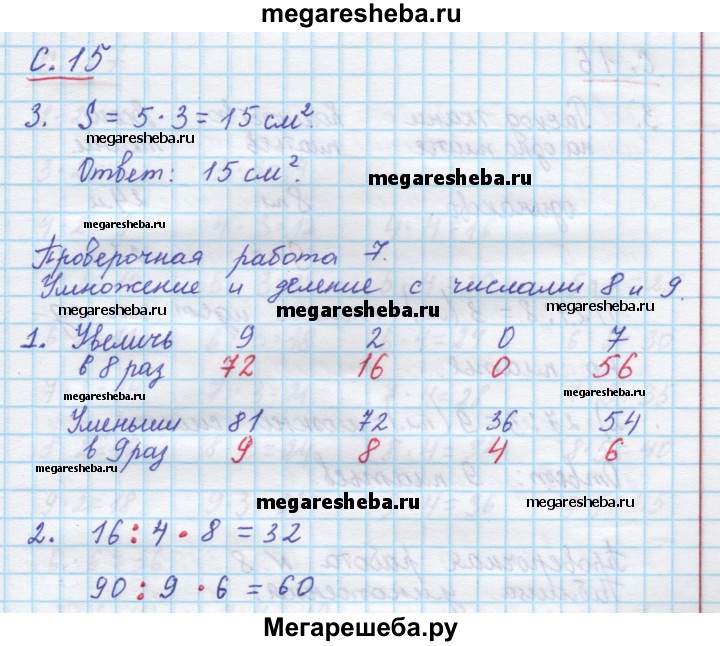 megaresheba.ru
с. 15
megaresheba.ru
3. S = 5 · 3 = 15 см².
megaresheba.ru
Ответ: 15 см².
megaresheba.ru
megaresheba.ru
Проверочная работа 7.
Умножение и деление с числами 8 и 9.
megaresheba.ru megaresheba.ru megaresheba.ru
1. Увеличь 9 2 0 7
в 8 раз 72 16 0 56
megaresheba.ru megaresheba.ru
Уменьши 81 72 36 54
в 9 раз 9 8 4 6
megaresheba.ru
megaresheba.ru megaresheba.ru
2. 16 : 4 · 8 = 32
90 : 9 · 6 = 60
Мегарешеба.ру